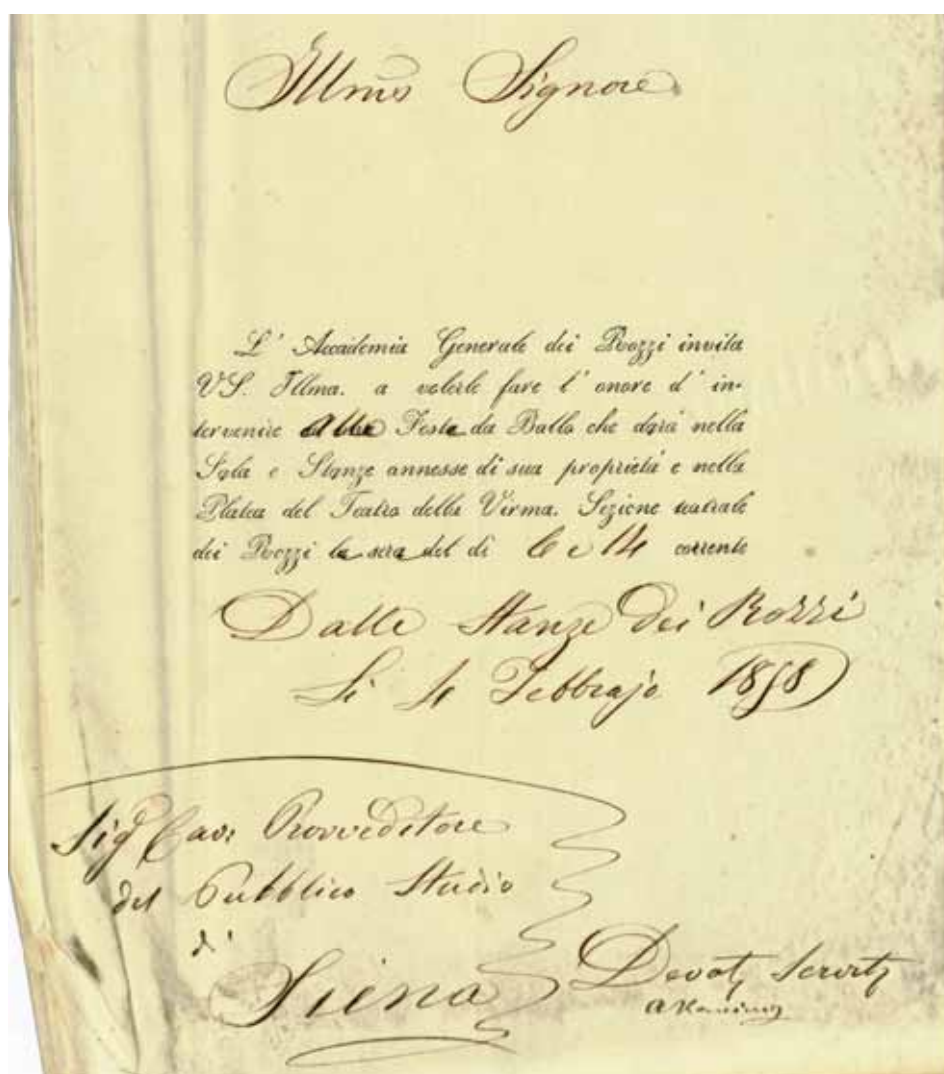 Illmo Signore
L' Accademia Generale dei Rozzi invita
VS. Illma. a volerle fare l' onore d' in-
tervenire alle Feste da Ballo che darà nella
Sala e Stanze annesse di sua proprietà e nella
Platea del Teatro della Virma. Sezione teatrale
dei Rozzi la sera del dì 6 e 14 corrente
Dalle Stanze dei Rozzi
Li 4 Febbrajo 1858
Sigr Cav: Provveditore
del Pubblico Studio
di
Siena
Devoti Serviti